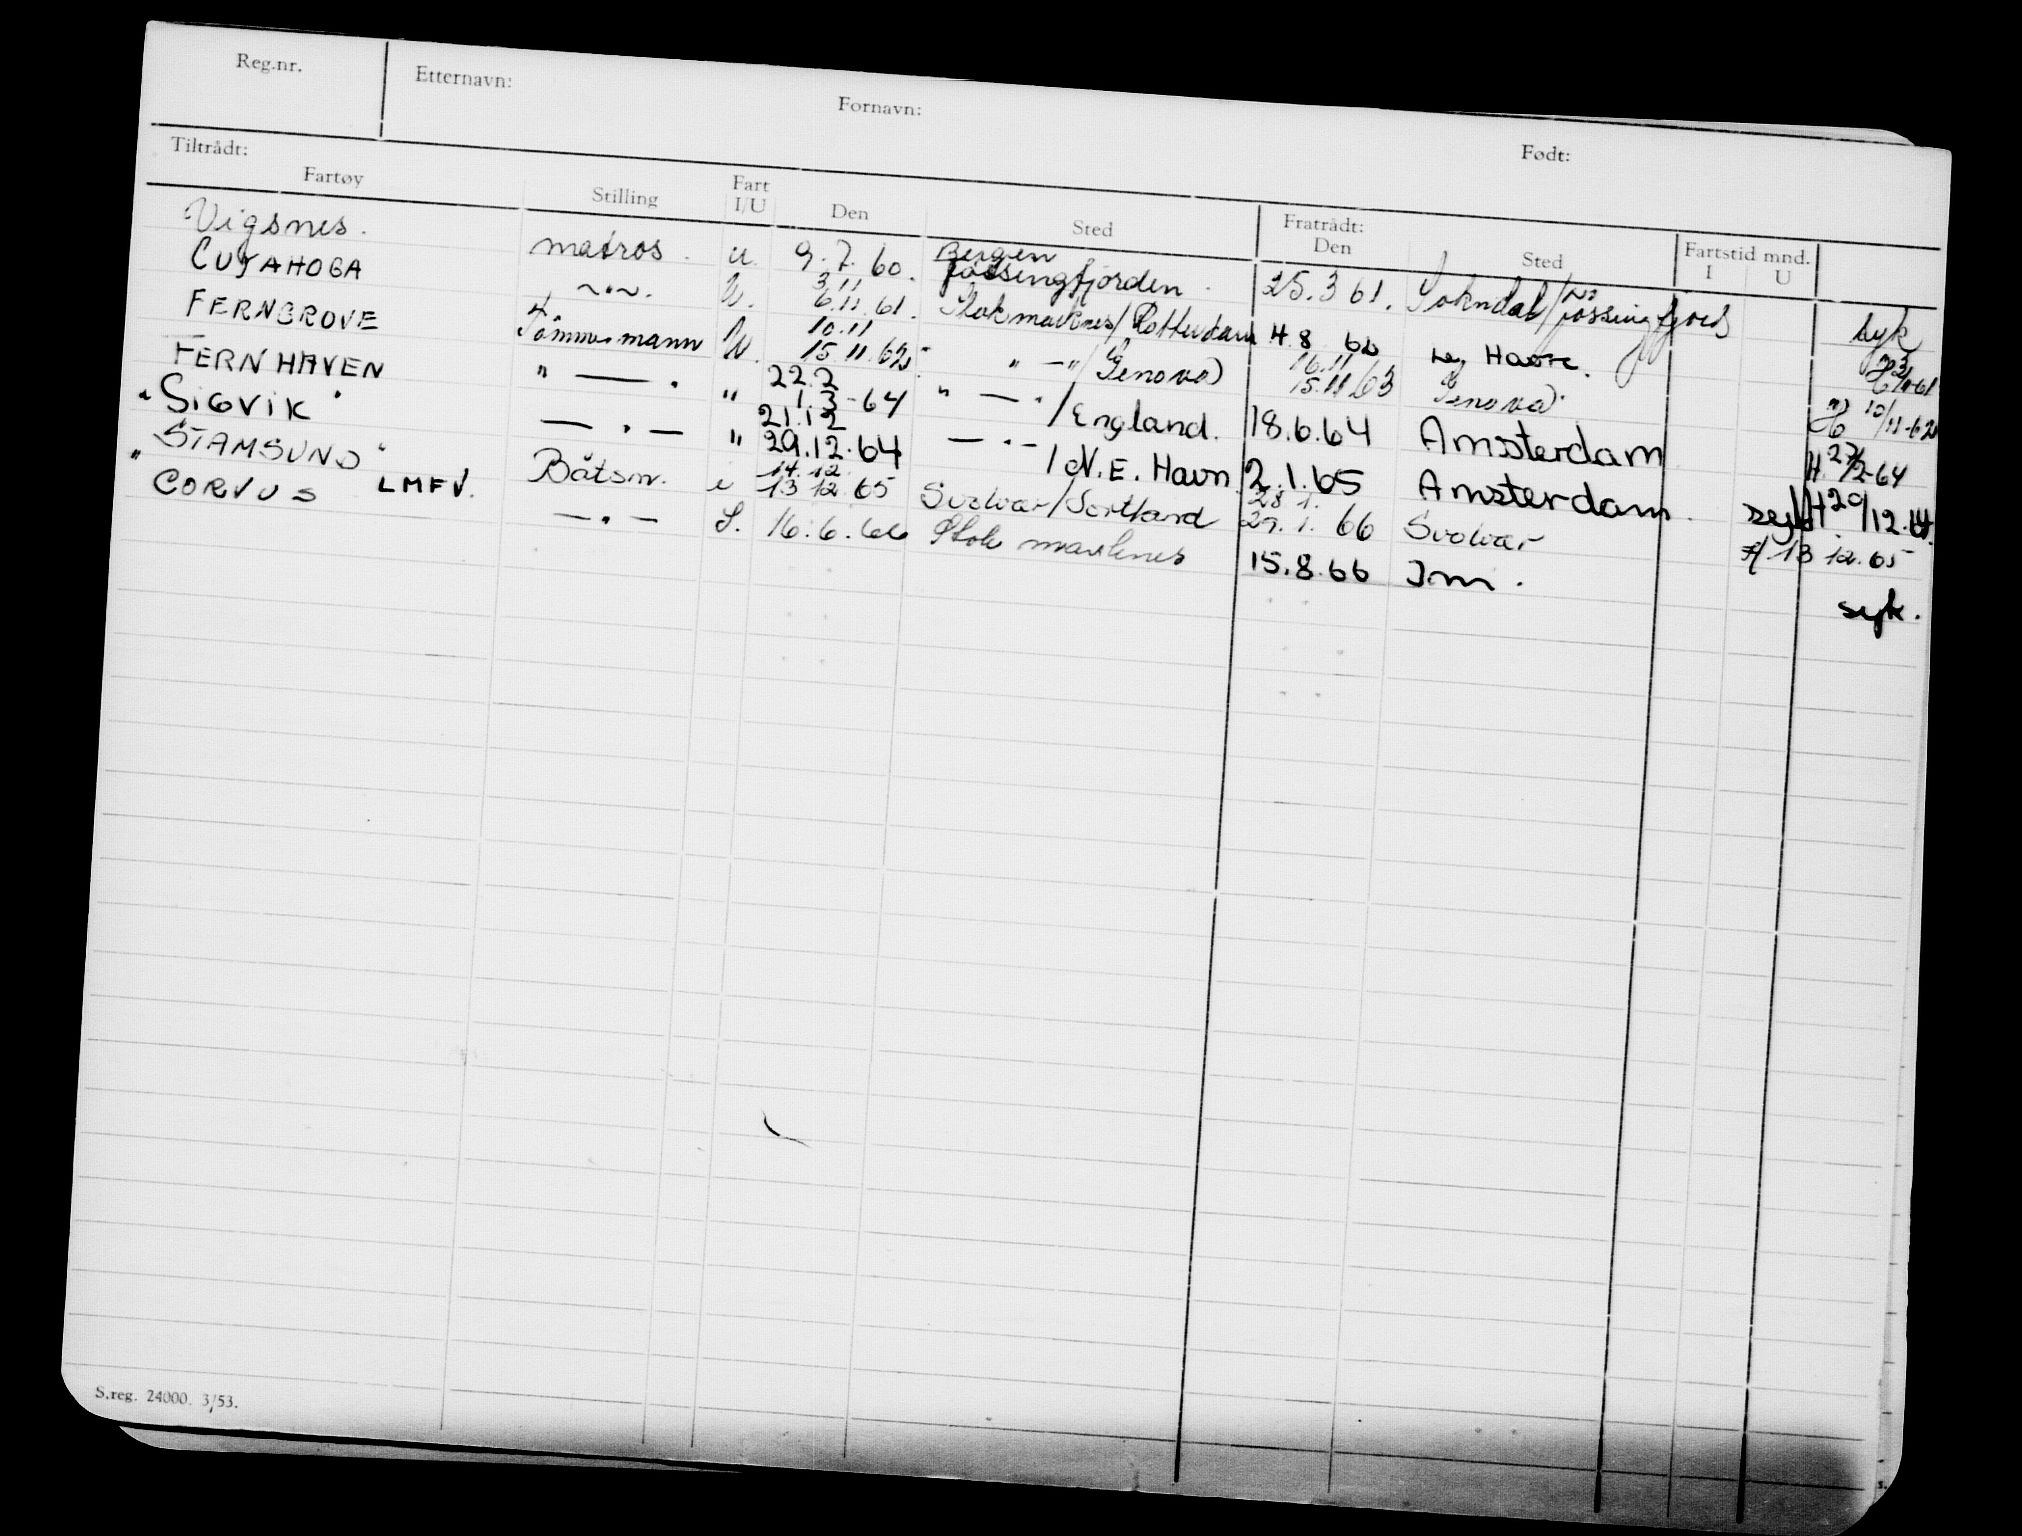 Reg.nr. Etternavn: Fornavn: Født:
Tiltrådt: Fratrådt: Fartstid mnd.
Fartøy Stilling Fart I/U Den Sted Den Sted I U
Vigsnes. matros. u. 9.7.60. Bergen Jøssingfjorden 25.3 61. Sokndal/Jøssingfjord syk
CUYAHOGA —"—. U. 3.11 6.11.61. Stokmarknes/Rotterdam 4.8 62 Le Havre.
FERNGROVE Tömmermann U. 10.11 15.11.62 " —"/Genova 16.11 15.11/63 Genova 10/11-62
FERNHAVEN " — . " 22.2 1.3-64 " — "/England. 18.6.64 Amsterdam H. 27/2-64
"SIGVIK" — " — " 21.12 29.12.64 — " —/N.E. Havn 2.1.65 Amsterdam H 29/12.64.
"STAMSUND" Båtsm. i 14.12. 13 12.65 Svolvær/Sortland 28.1. 29.1.66 Svolvær 13 12.65
"CORVUS LMFV. — " — S. 16.6.66 Stokmarknes 15.8.66 Im. syk.
S.reg. 24000. 3/53.